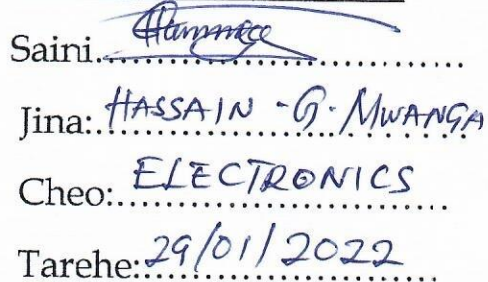 Saini..................................
Jina: HASSAIN - G. MWANGA
Cheo: ELECTRONICS
Tarehe: 29/01/2022